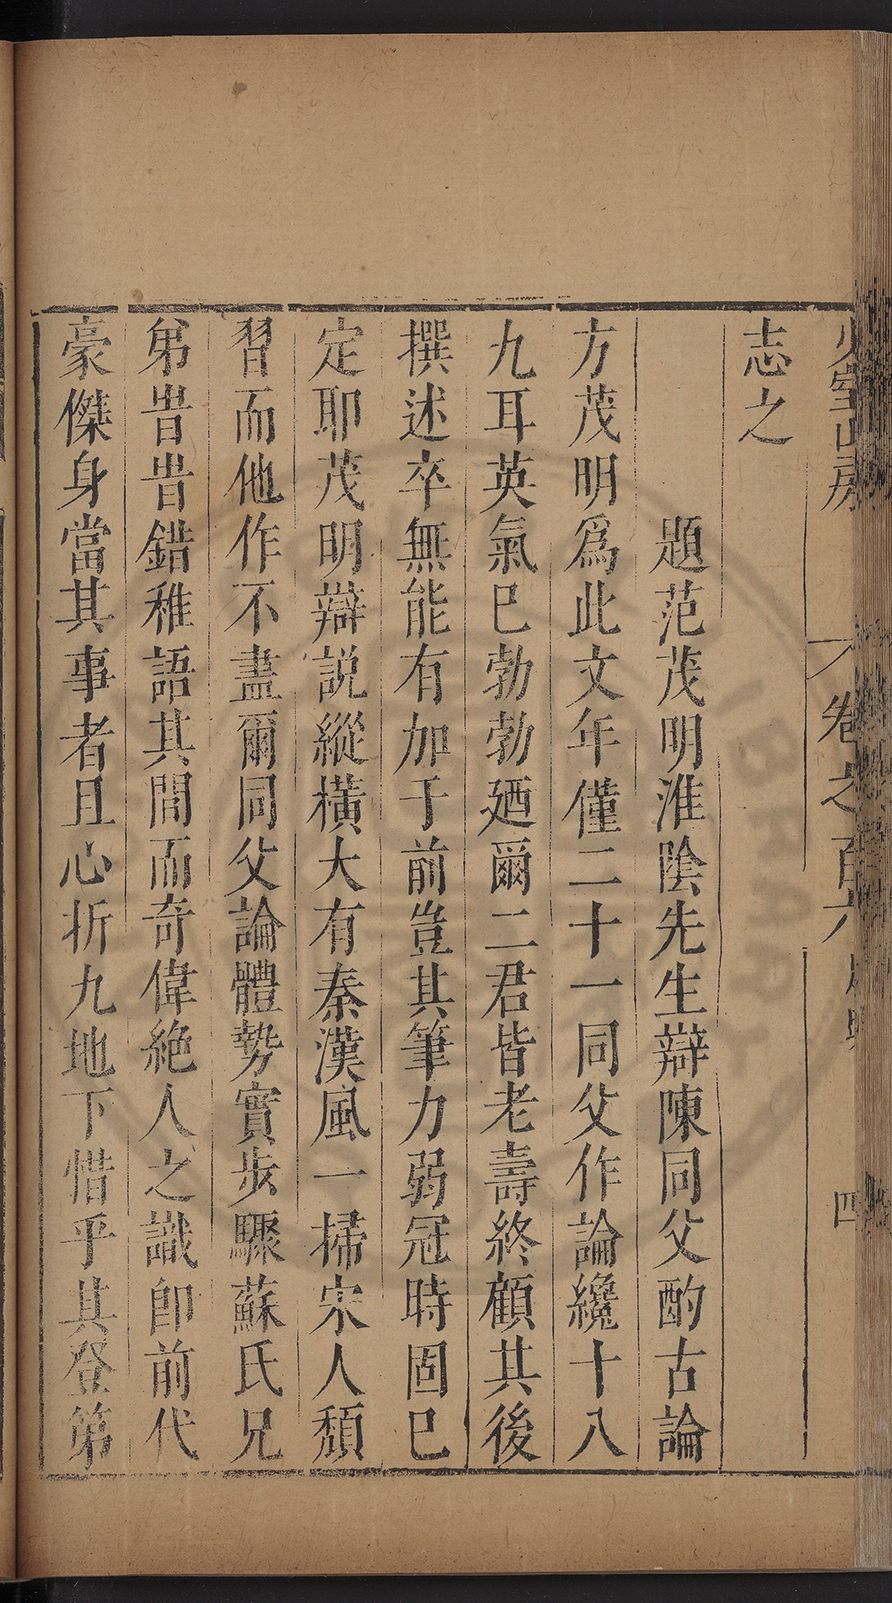 少室山房 卷之百六 四
志之
題范茂明淮陰先生辯陳同父酌古論
方茂明爲此文年僅二十一同父作論纔十八
九耳英氣已勃勃廼爾二君皆老壽終顧其後
撰述卒無能有加于前豈其筆力弱冠時固已
定耶茂明辯説縱橫大有秦漢風一掃宋人頽
習而他作不盡爾同父論體勢實步驟蘇氏兄
弟旹旹錯稚語其間而奇偉絶人之識卽前代
豪傑身當其事者且心折九地下惜乎其登第